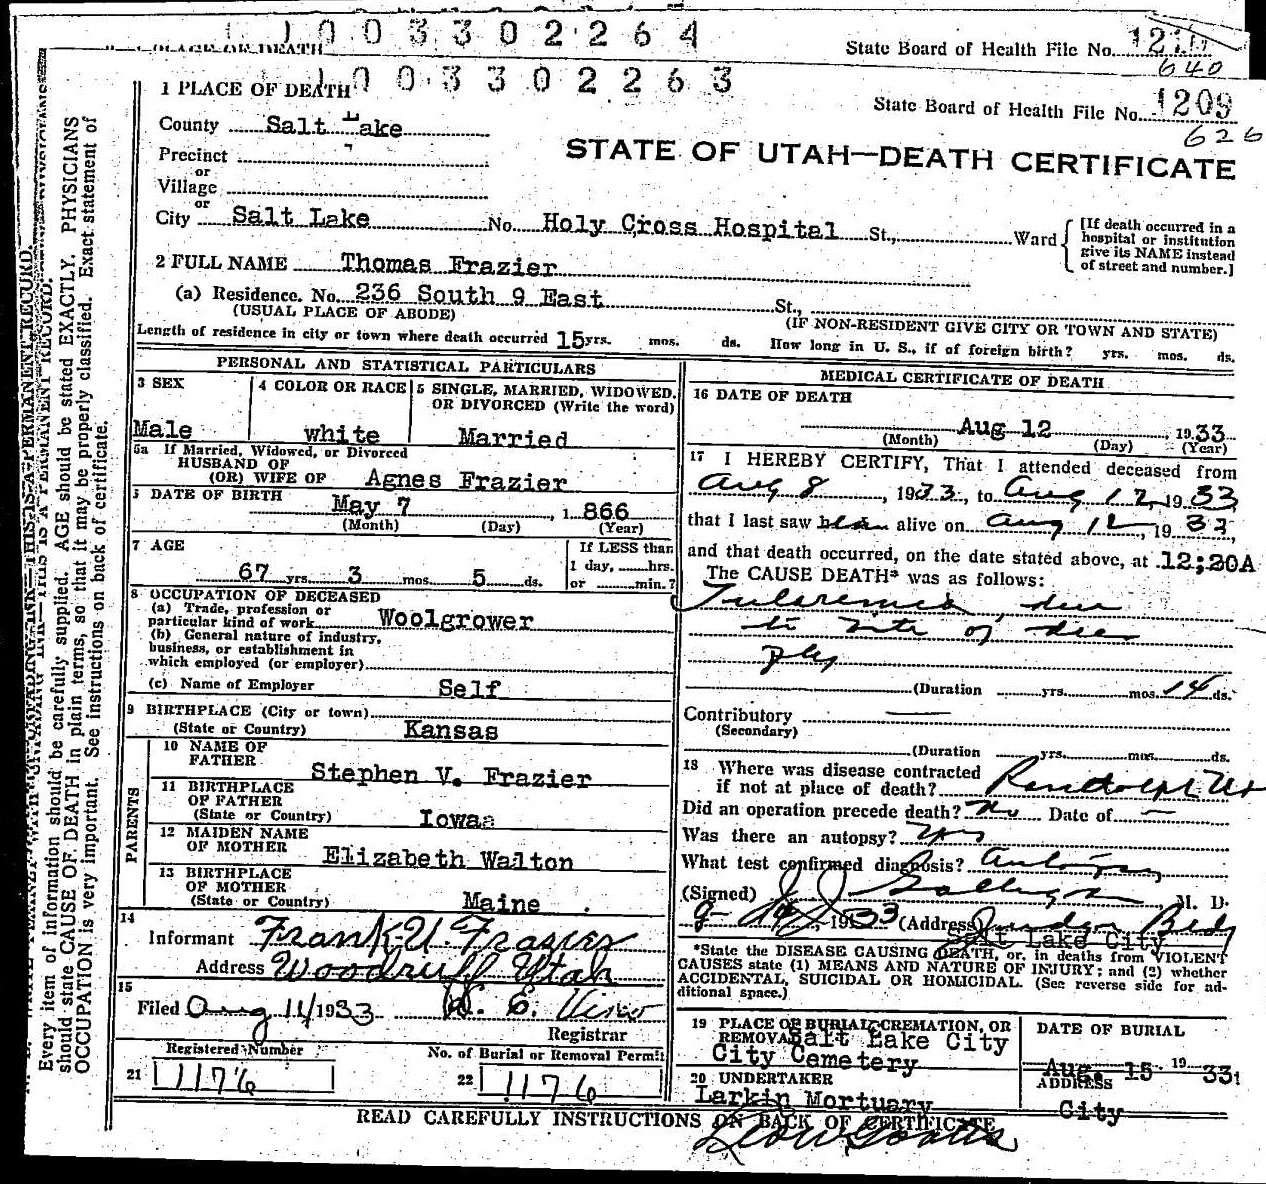 1003302264
1 PLACE OF DEATH
State Board of Health File No. 1210
640
1003302263
1 PLACE OF DEATH
State Board of Health File No. 1209
626
County Salt Lake
STATE OF UTAH—DEATH CERTIFICATE
Precinct
or
Village
or
City Salt Lake No. Holy Cross Hospital St., Ward
[If death occurred in a hospital or institution give its NAME instead of street and number.]
2 FULL NAME Thomas Frazier
(a) Residence. No. 236 South 9 East St.,
(USUAL PLACE OF ABODE) (IF NON-RESIDENT GIVE CITY OR TOWN AND STATE)
Length of residence in city or town where death occurred 15 yrs. mos. ds. How long in U. S., if of foreign birth? yrs. mos. ds.
PERSONAL AND STATISTICAL PARTICULARS
3 SEX
Male
4 COLOR OR RACE
white
5 SINGLE, MARRIED, WIDOWED, OR DIVORCED (Write the word)
Married
5a If Married, Widowed, or Divorced
HUSBAND OF
(OR) WIFE OF Agnes Frazier
DATE OF BIRTH
May 7, 1866
(Month) (Day) (Year)
7 AGE
67 yrs. 3 mos. 5 ds.
If LESS than
1 day, hrs.
or min.?
8 OCCUPATION OF DECEASED
(a) Trade, profession or
particular kind of work Woolgrower
(b) General nature of industry,
business, or establishment in
which employed (or employer)
(c) Name of Employer Self
9 BIRTHPLACE (City or town)
(State or Country) Kansas
PARENTS
10 NAME OF
FATHER Stephen V. Frazier
11 BIRTHPLACE
OF FATHER
(State or Country) Iowaa
12 MAIDEN NAME
OF MOTHER Elizabeth Walton
13 BIRTHPLACE
OF MOTHER
(State or Country) Maine
14
Informant Frank U. Frazier
Address Woodruff Utah
15
Filed Aug 11/1933
Registrar
Registered Number
21 1176
No. of Burial or Removal Permit
22 1176
MEDICAL CERTIFICATE OF DEATH
16 DATE OF DEATH
Aug 12, 1933
(Month) (Day) (Year)
17 I HEREBY CERTIFY, That I attended deceased from
Aug 8, 1933, to Aug 12, 1933,
that I last saw alive on Aug 12, 1933,
and that death occurred, on the date stated above, at 12;20A
The CAUSE DEATH* was as follows:
Tularemia, due
to bite of deer
fly
(Duration yrs. mos. 14 ds.
Contributory
(Secondary)
(Duration yrs. mos. ds.
18 Where was disease contracted
if not at place of death? Randolph Ut
Did an operation precede death? No Date of —
Was there an autopsy? Yes
What test confirmed diagnosis? Autopsy
(Signed) M. D.
1933 (Address Judge Bldg
Salt Lake City
*State the DISEASE CAUSING DEATH, or, in deaths from VIOLENT
CAUSES state (1) MEANS AND NATURE OF INJURY; and (2) whether
ACCIDENTAL, SUICIDAL OR HOMICIDAL. (See reverse side for additional space.)
19 PLACE OF BURIAL, CREMATION, OR
REMOVAL Salt Lake City
City Cemetery
DATE OF BURIAL
Aug. 15 1933
20 UNDERTAKER
Larkin Mortuary
ADDRESS
City
READ CAREFULLY INSTRUCTIONS ON BACK OF CERTIFICATE
Every item of information should be carefully supplied. AGE should be stated EXACTLY. PHYSICIANS
should state CAUSE OF DEATH in plain terms, so that it may be properly classified. Exact statement of
OCCUPATION is very important. See instructions on back of certificate.